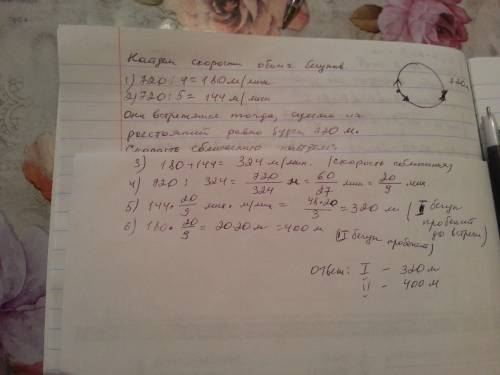 Найдем скорости обоих бегунов.
1) 720 : 4 = 180 м/мин
2) 720 : 5 = 144 м/мин
Они встретятся тогда, сумма их
расстояний равна будет 720 м.
Скорость сближения найдем:
3) 180 + 144 = 324 м/мин. (скорость сближения)
4) 720 : 324 = 720/324 = 60/27 мин = 20/9 мин
5) 144 · 20/9 мин · м/мин = 48·20/3 = 320 м (II бегун
пробежит
до встречи)
6) 180 · 20/9 = 20·20 м = 400 м (I бегун пробежит)
Ответ: I – 320 м
II – 400 м